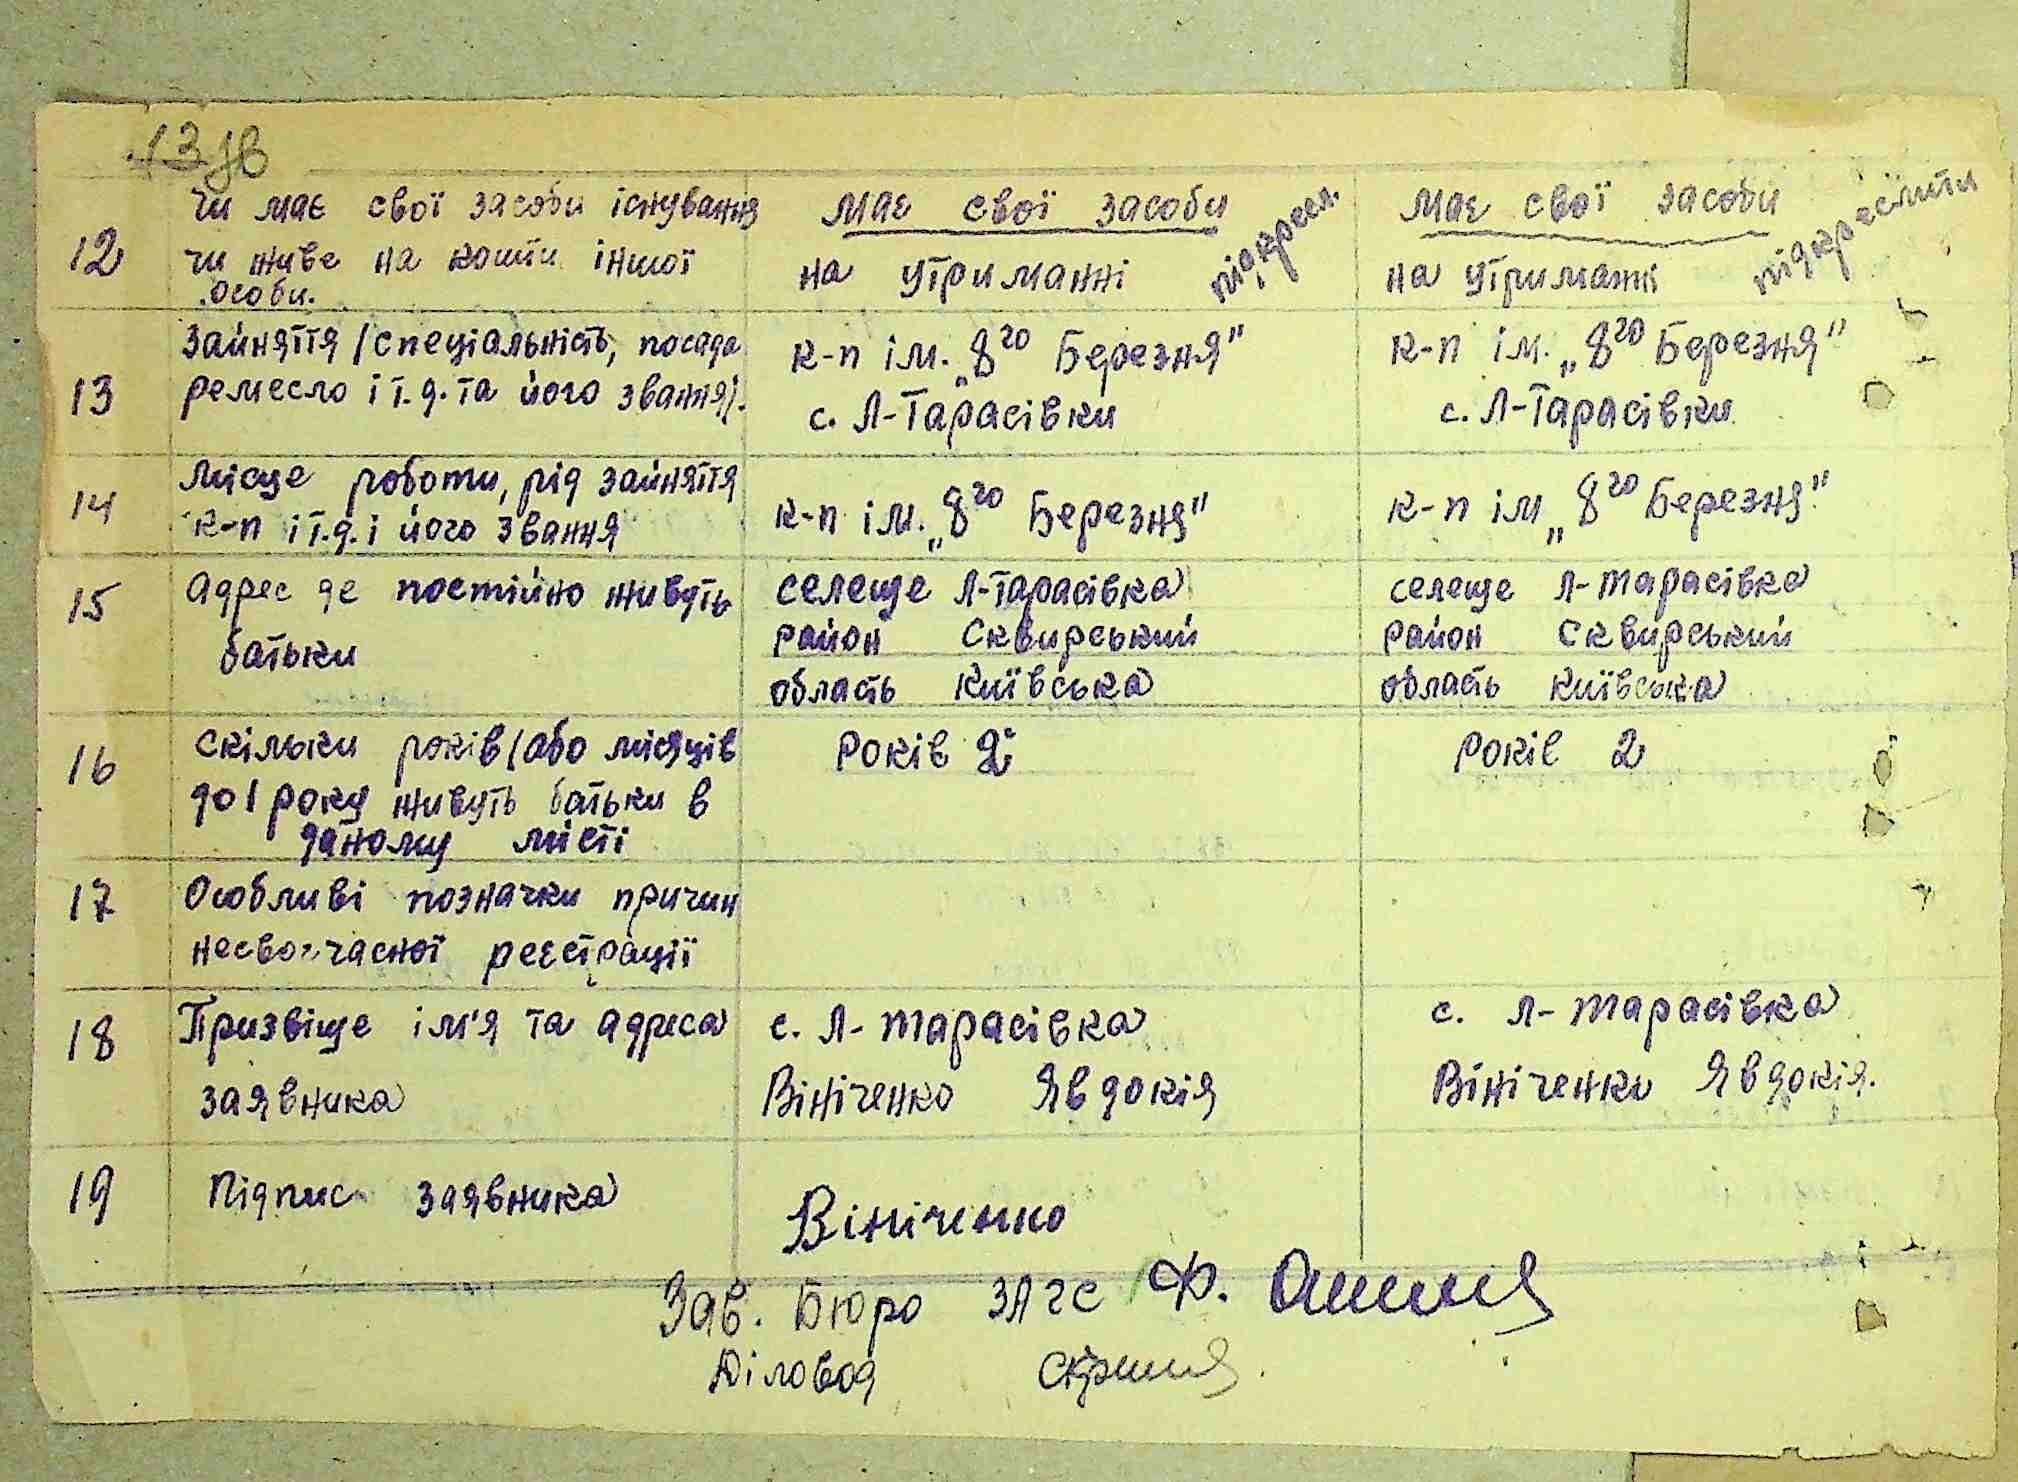 13 зв
12 Чи має свої засоби існування
чи живе на кошти іншої
особи.
має свої засоби
на утриманні
підкресл.
має свої засоби
на утриманні
підкреслити
13 Зайняття /спеціальність, посада
ремесло і т.д. та його звання/.
к-п ім. „8го Березня"
с. Л-Тарасівки
к-п ім. „8го Березня"
с. Л-Тарасівки
14 Місце роботи, рід зайняття
к-п і т.д. і його звання
к-п ім. „8го Березня"
к-п ім „8го Березня"
15 Адрес де постійно живуть
батьки
селеще Л-Тарасівка
район Сквирський
область Київська
селеще Л-Тарасівка
район Сквирський
область Київська
16 Скільки років /або місяців
до 1 року живуть батьки в
даному місті
Років 2
Років 2
17 Особливі позначки причин
несвоєчасної реєстрації
18 Призвіще ім'я та адреса
заявника
с. Л-Тарасівка
Вініченко Явдокія
с. Л-Тарасівка
Вініченко Явдокія.
19 Підпис заявника
Вініченко
Зав. Бюро ЗАГС Ф.
Діловод